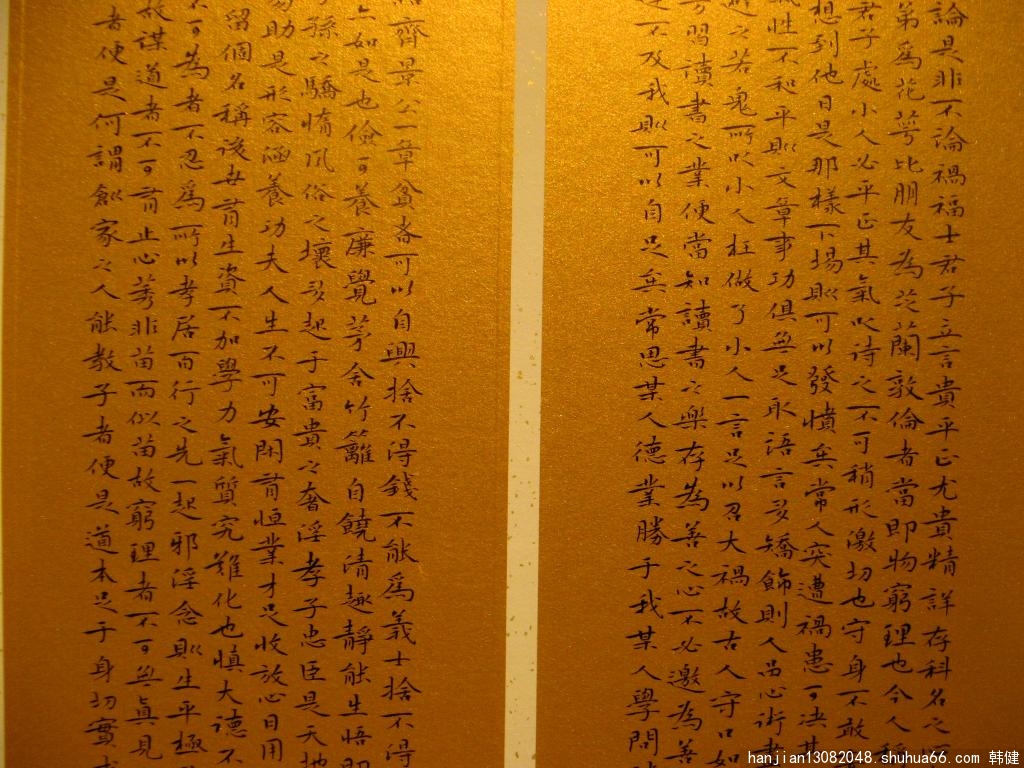 論是非不論禍福士君子立言貴平正尤貴精詳存科名之
弟為花萼比朋友為芝蘭敦倫者當即物窮理也今人稱
君子處小人必平正其氣以待之不可稍形激切也守身不敢
想到他日是那樣下場則可以發憤矣常人突遭禍患可決其
性不和平則文章事功俱無足取語言多矯飾則人品心術盡
之若鬼所以小人枉做了小人一言足以召大禍故古人守口如
習讀書之業便當知讀書之樂存為善之心不必邀為善
不及我則可以自足矣常思某人德業勝于我某人學問
齊景公一章貧者可以自興捨不得錢不能為義士捨不得
如是也儉可養廉覺茅舍竹籬自饒清趣靜能生悟即
孫之驕惰風俗之壞多起于富貴之奢淫孝子忠臣是天地
助是形容涵養功夫人生不可安閑有恒業才足收放心日用
留個名稱後世有生資不加學力氣質究難化也慎大德不
可為者不忍為所以孝居百行之先一起邪淫念則生平極
故謀道者不可有止心莠非苗而似苗故窮理者不可無真見
者便是何謂創家之人能教子者便是道本足于身切實
hanjian13082048. shuhua66. com 韩健